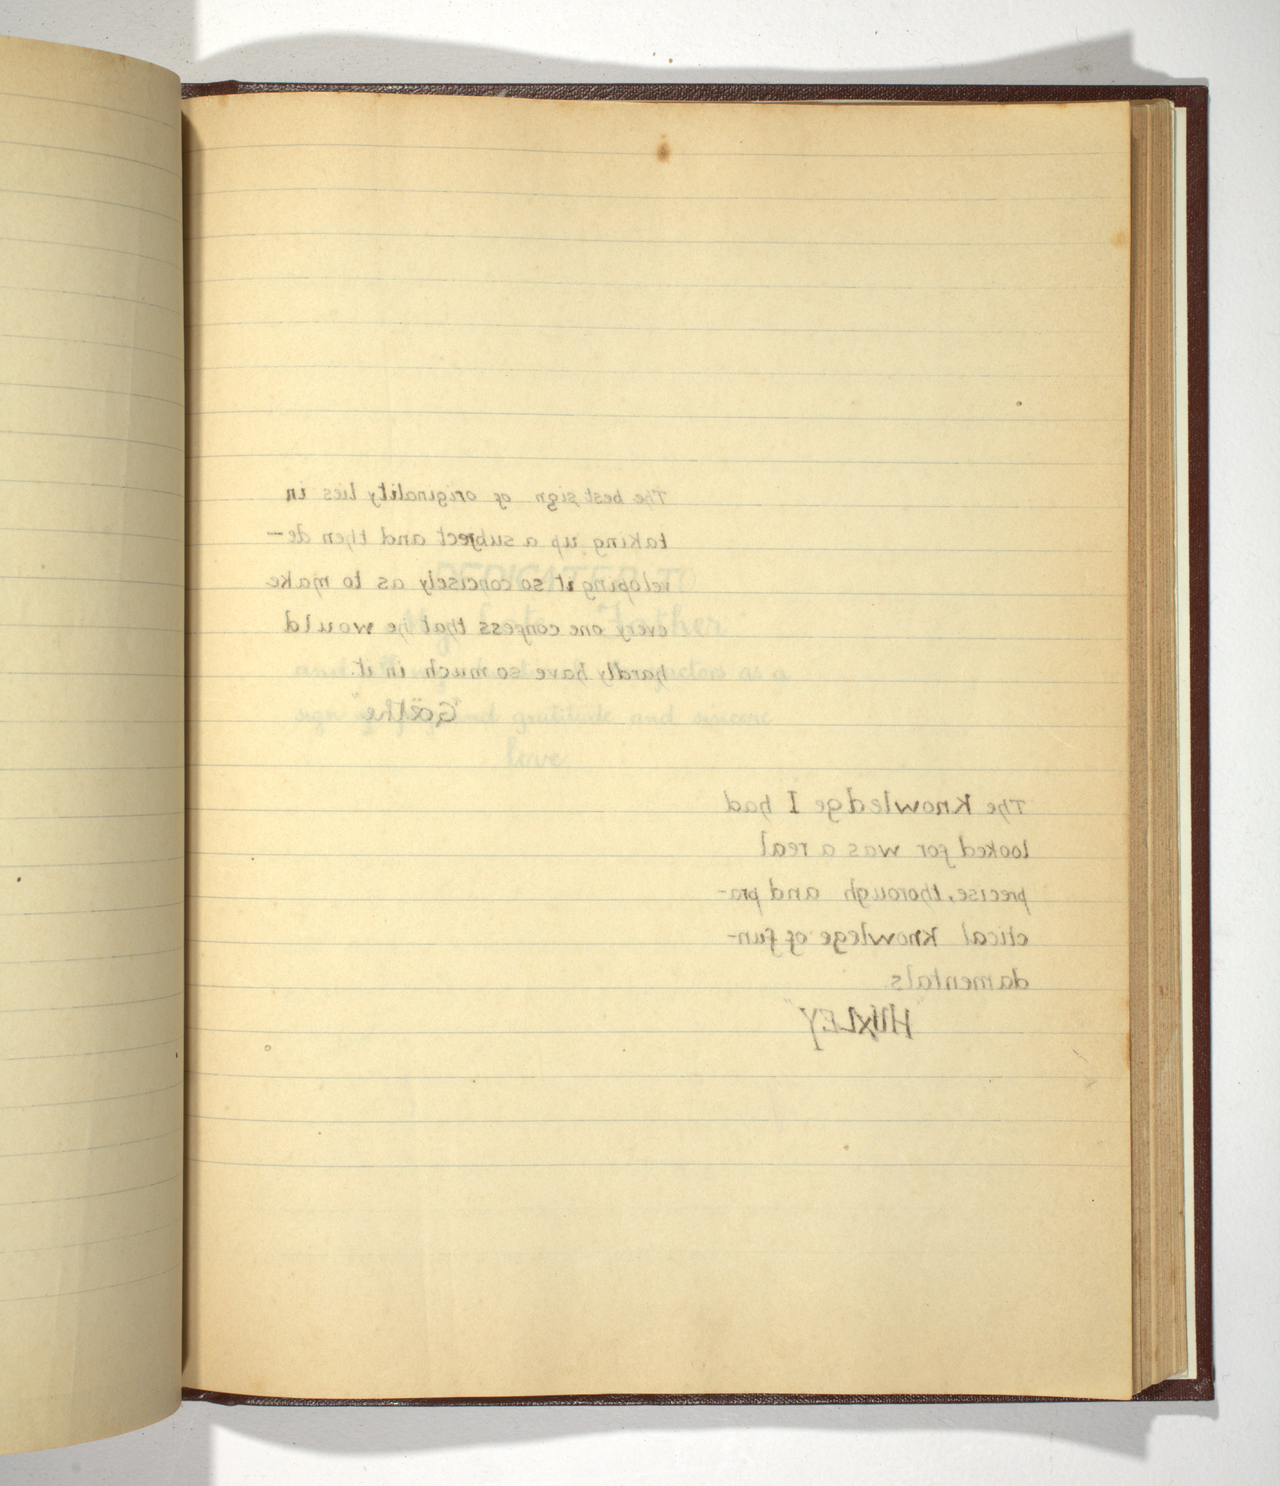 The best sign of originality lies in
taking up a subject and then de-
veloping it so concisely as to make
every one confess that he would
hardly have so much in it.
"Goëthe"
DEDICATED TO
My Late Father
and as a
sign of and gratitude and sincere
love
The Knowledge I had
looked for was a real
precise, thorough and pra-
ctical Knowlege of fun-
damentals
"HUXLEY"